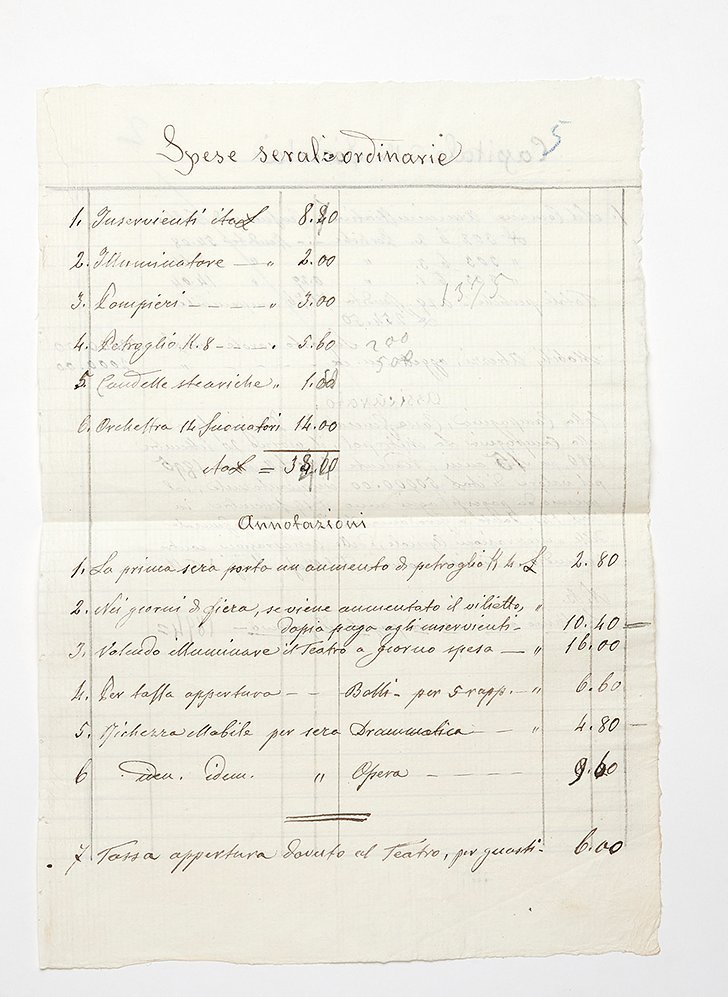 5
Spese serali-ordinarie
1. Inservienti ital £ 8.40
2. Illuminatore — " 2.00
3. Pompieri — " 3.00
1375
4. Petroglio K. 8 — " 5.60
200
500
5. Candelle steariche " 1.60
6. Orchestra 14 Suonatori 14.00
ital £ =
Annotazioni
1. La prima sera porta un aumento di petroglio K 4. £ 2.80
2. Nei giorni di fiera, se viene aumentato il vilietto, "
dopia paga agli inservienti - 10.40 —
3. Volendo illuminare il Teatro a giorno spesa — " 16.00
4. Per tassa appertura - - Bolli - per 5 rapp. - " 6.60
5. Richezza Mobile per sera Drammatica — " 4.80 —
6 idem. idem. " Opera - - - - 9.60
7 Tassa appertura dovuto al Teatro, per guasti - 6.00